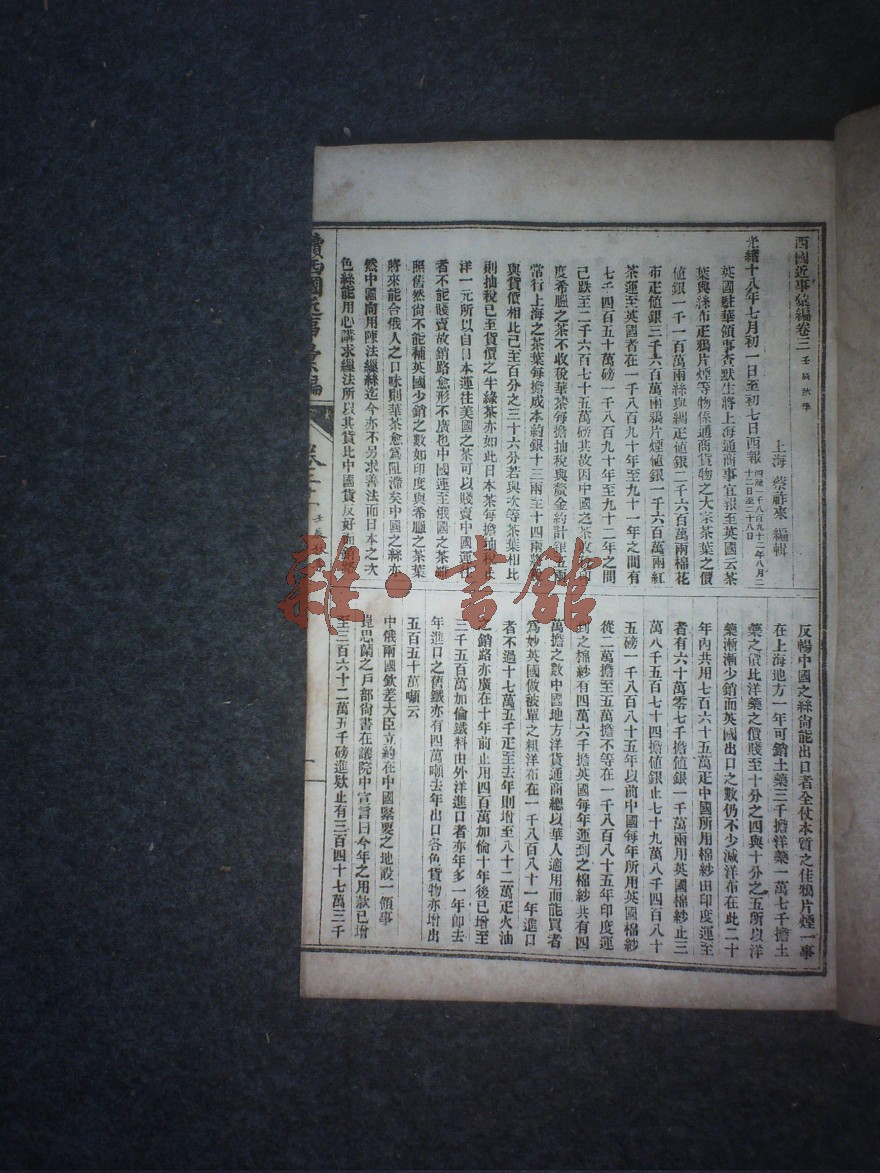 西國近事彙編卷三 壬辰秋季
上海 蔡祚來 編輯
光緒十八年七月初一日至初七日西報 西歷一千八百九十二年八月二十二日至二十八日
英國駐華領事查默生將上海通商事宜報至英國云茶
葉與絲布疋鴉片煙等物係通商貨物之大宗茶葉之價
値銀一千一百萬兩絲與綢疋値銀二千六百萬兩棉花
布疋値銀三千六百萬兩鴉片煙値銀一千六百萬兩紅
茶運至英國者在一千八百九十年至九十一年之間有
七千四百五十萬磅一千八百九十年至九十二年之間
已跌至二千六百七十五萬磅其故因中國之茶
度希臘之茶不收稅華茶每擔抽稅與釐金約計銀五兩
常行上海之茶葉每擔成本約銀十三兩至十四兩
與貨價相比已至百分之三十六分若與次等茶葉相比
則抽稅已至貨價之半綠茶亦如此日本茶每擔抽稅
洋一元所以自日本運往美國之茶可以賤賣中國運
者不能賤賣故銷路愈形不廣也中國運至俄國之茶
照舊然尙不能補英國少銷之數如印度與希臘之茶葉
將來能合俄人之口味則華茶愈爲阻滯矣中國之絲亦
然中國尙用陳法繅絲迄今亦不另求善法而日本之次
色絲能用心講求繅法所以其貨比中國貨反好而銷
反暢中國之絲尙能出口者全仗本質之佳鴉片煙一事
在上海地方一年可銷土藥三千擔洋藥一萬七千擔土
藥之價比洋藥之價賤至十分之四與十分之五所以洋
藥漸漸少銷而英國出口之數仍不少減洋布在此二十
年內共用七百六十五萬疋中國所用棉紗由印度運至
者有六十萬零七千擔値銀一千萬兩用英國棉紗止三
萬八千五百七十四擔値銀止七十九萬八千四百八十
五磅一千八百八十五年以前中國每年所用英國棉紗
從二萬擔至五萬擔不等在一千八百八十五年印度運
到之棉紗有四萬六千擔英國每年運到之棉紗共有四
萬擔之數中國地方洋貨通商總以華人適用而能買者
爲妙英國做被單之粗洋布在一千八百八十一年進口
者不過十七萬五千疋至去年則增至八十二萬疋火油
之銷路亦廣在十年前止用四百萬加倫十年後已增至
三千五百萬加倫鐵料由外洋進口者亦年多一年卽去
年進口之舊鐵亦有四萬噸去年出口各色貨物亦增出
五百五十萬噸云
中俄兩國欽差大臣立約在中國緊要之地設一領事
崑思蘭之戶部尙書在議院中宣言曰今年之用款已增
至三百六十二萬五千磅進欵止有三百四十七萬三千
續西國近事彙編
卷三 一
雜·書館